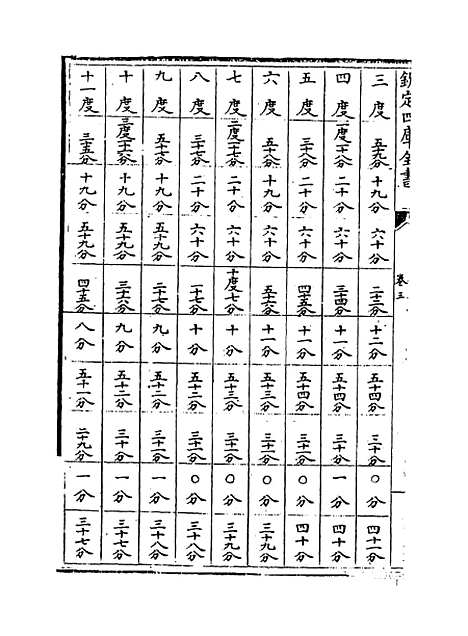 欽定四庫全書
卷三
三度 五十九分 十九分 六十分 二十三分 十二分 五十四分 三十分 〇分 四十一分
四度 一度十八分 二十分 六十分 三十四分 十一分 五十四分 三十分 一分 四十分
五度 三十八分 二十分 六十分 四十五分 十一分 五十四分 三十一分 〇分 四十分
六度 五十八分 十九分 六十分 五十六分 十一分 五十三分 三十一分 〇分 三十九分
七度 二度十七分 二十分 六十分 十度七分 十分 五十三分 三十一分 〇分 三十九分
八度 三十七分 二十分 六十分 十七分 十分 五十三分 三十一分 〇分 三十八分
九度 五十七分 十九分 五十九分 二十七分 九分 五十二分 三十一分 一分 三十八分
十度 三度十六分 十九分 五十九分 三十六分 九分 五十二分 三十分 一分 三十七分
十一度 三十五分 十九分 五十九分 四十五分 八分 五十一分 二十九分 一分 三十七分